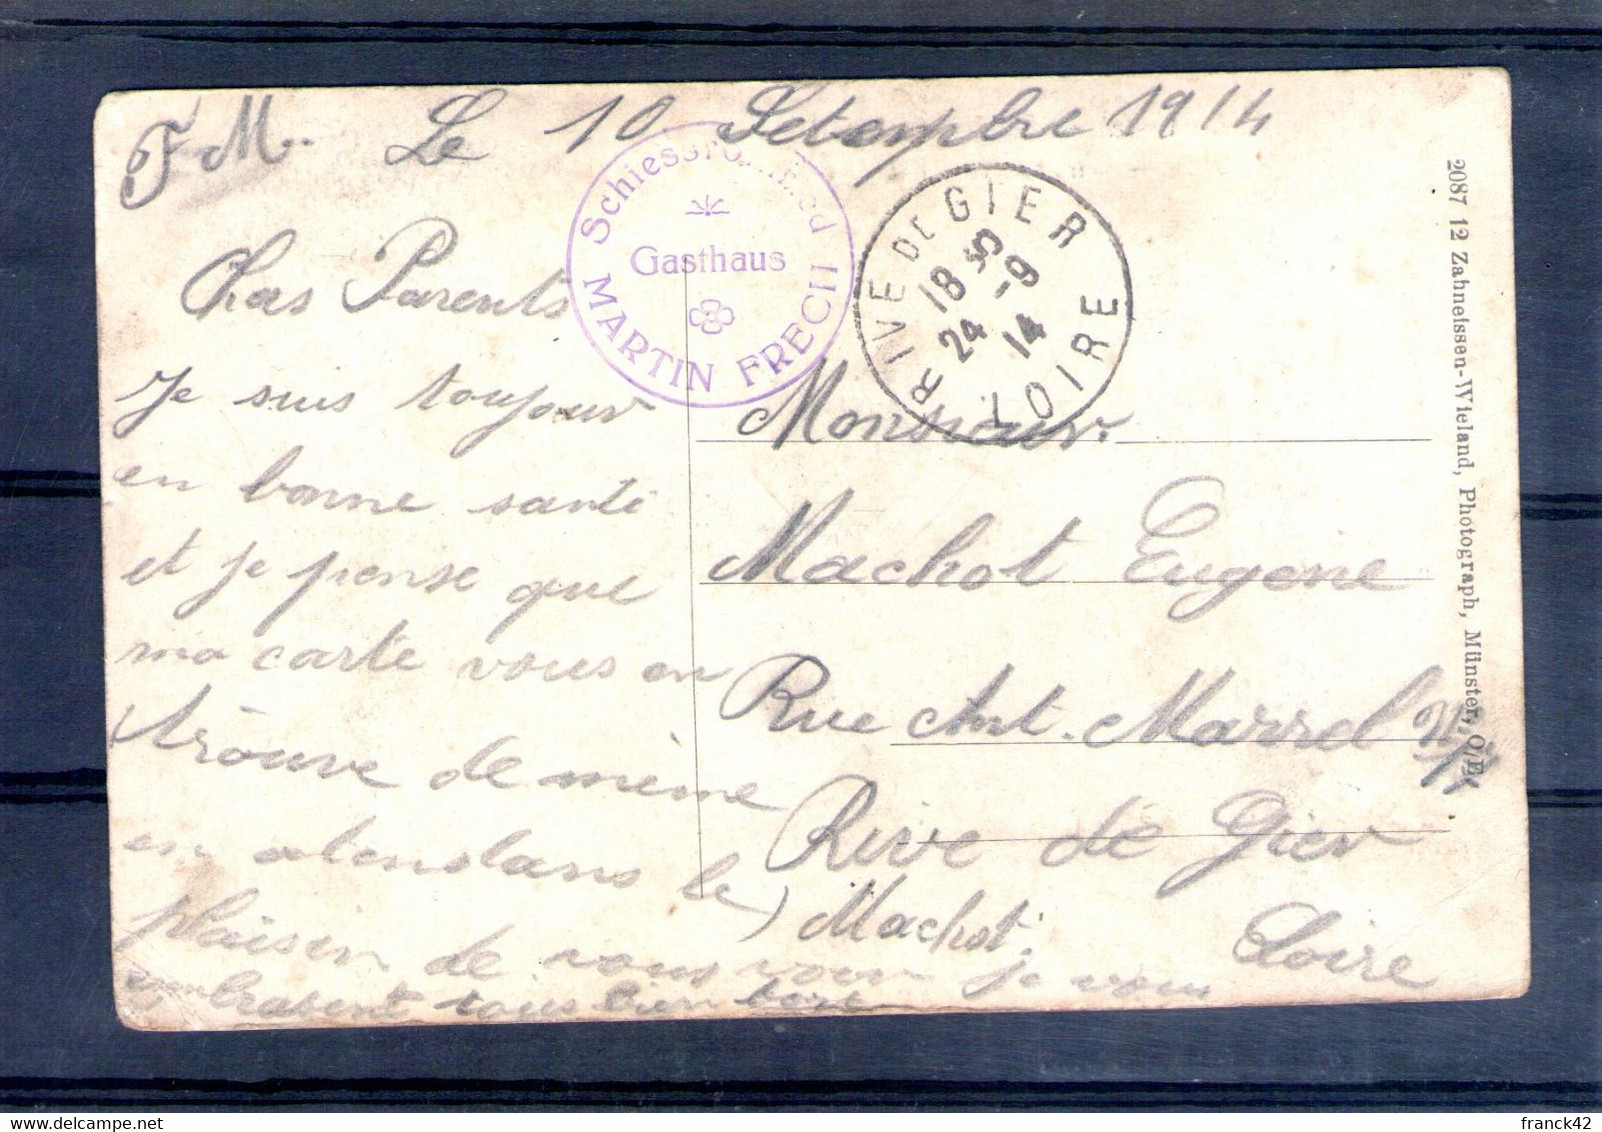 FM. Le 10 Setempbre 1914
Chers Parents
Je suis toujour
en bonne santé
et je pense que
ma carte vous en
trouve de mème
en atendans le
plaisir de vous voir je vous
embrasent tous bien
Machot.
Schiessrothried
Gasthaus
MARTIN FRECH
RIVE DE GIER
18 35
24 -9
14
LOIRE
Monsieur
Machot Eugene
Rue Ant. Marrel
Rive de Gier
Loire
2087 12 Zahneissen-Wieland, Photograph, Münster, O/E.
franck42